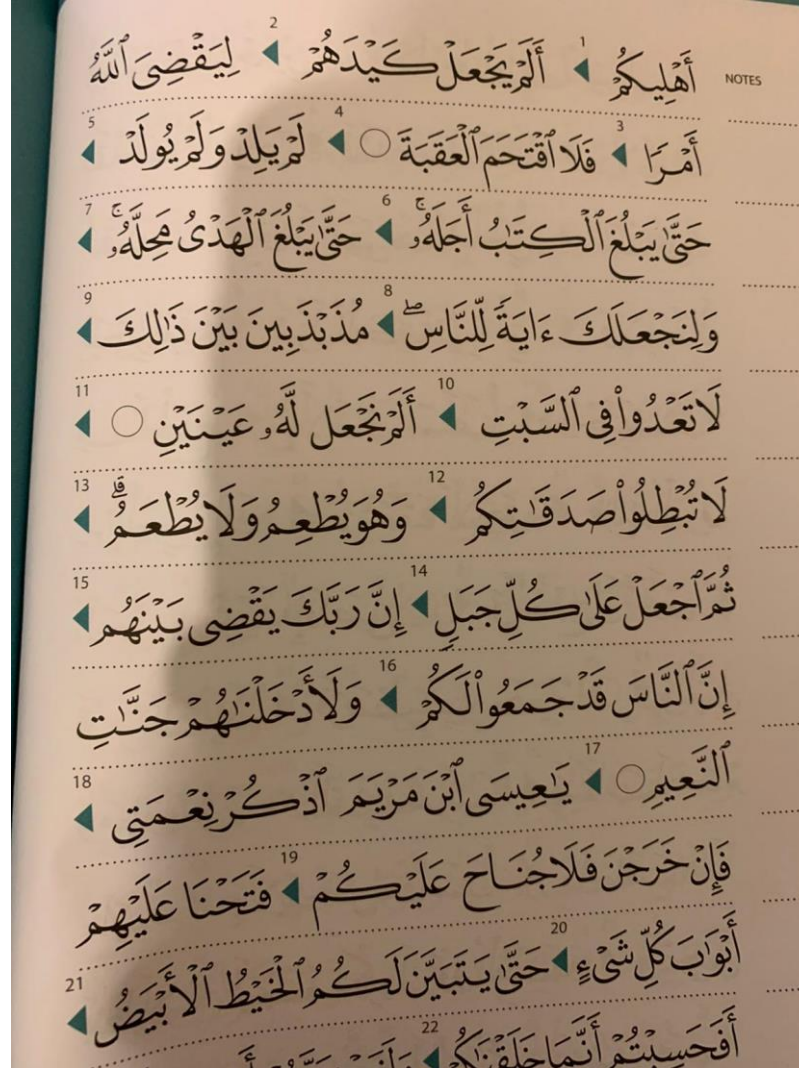 NOTES
أَهْلِيكُمْ ◀ 1 أَلَمْ يَجْعَلْ كَيْدَهُمْ ◀ 2 لِيَقْضِىَ ٱللَّهُ
أَمْرًا ◀ 3 فَلَا ٱقْتَحَمَ ٱلْعَقَبَةَ ○ ◀ 4 لَمْ يَلِدْ وَلَمْ يُولَدْ ◀ 5
حَتَّىٰ يَبْلُغَ ٱلْكِتَـٰبُ أَجَلَهُۥ ۚ ◀ 6 حَتَّىٰ يَبْلُغَ ٱلْهَدْىُ مَحِلَّهُۥ ۚ ◀ 7
وَلِنَجْعَلَكَ ءَايَةً لِّلنَّاسِ ۖ ◀ 8 مُذَبْذَبِينَ بَيْنَ ذَٰلِكَ ◀ 9
لَا تَعْدُوا۟ فِى ٱلسَّبْتِ ◀ 10 أَلَمْ نَجْعَل لَّهُۥ عَيْنَيْنِ ○ ◀ 11
لَا تُبْطِلُوا۟ صَدَقَـٰتِكُم ◀ 12 وَهُوَ يُطْعِمُ وَلَا يُطْعَمُ ۗ ◀ 13
ثُمَّ ٱجْعَلْ عَلَىٰ كُلِّ جَبَلٍ ◀ 14 إِنَّ رَبَّكَ يَقْضِى بَيْنَهُم ◀ 15
إِنَّ ٱلنَّاسَ قَدْ جَمَعُوا۟ لَكُمْ ◀ 16 وَلَأَدْخَلْنَـٰهُمْ جَنَّـٰتِ
ٱلنَّعِيمِ ○ ◀ 17 يَـٰعِيسَى ٱبْنَ مَرْيَمَ ٱذْكُرْ نِعْمَتِى ◀ 18
فَإِنْ خَرَجْنَ فَلَا جُنَاحَ عَلَيْكُمْ ◀ 19 فَتَحْنَا عَلَيْهِمْ
أَبْوَٰبَ كُلِّ شَىْءٍ ◀ 20 حَتَّىٰ يَتَبَيَّنَ لَكُمُ ٱلْخَيْطُ ٱلْأَبْيَضُ ◀ 21
أَفَحَسِبْتُمْ أَنَّمَا خَلَقْنَـٰكُمْ ◀ 22